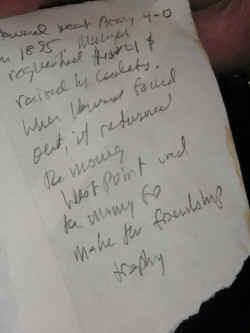 Harvard beat Army 4-0
in 1895. Michael
requested
raised by Cadets.
When Harvard found
out, it returned
the money
West Point used
the money to
make the friendship
trophy